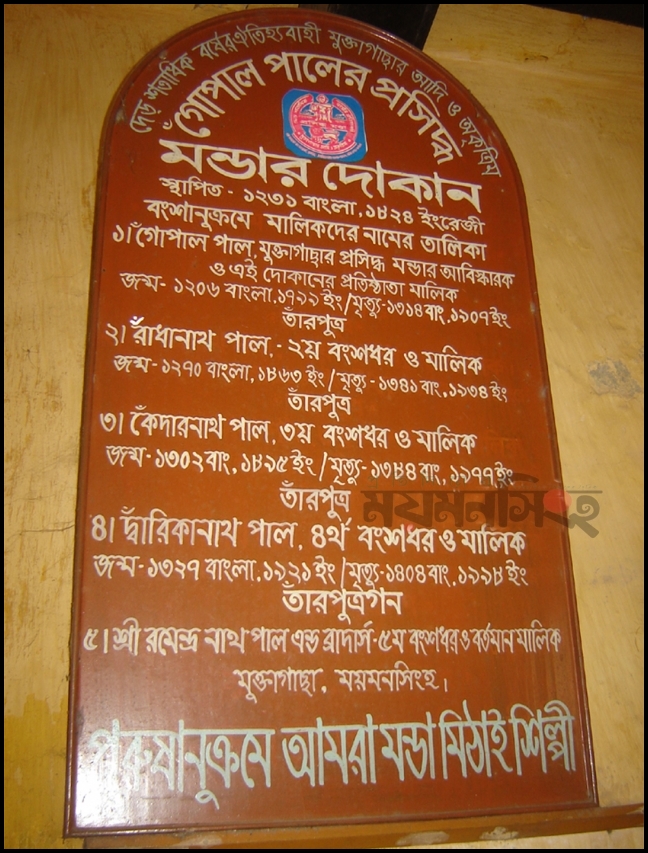 দেড় শতাধিক বর্ষের ঐতিহ্যবাহী মুক্তাগাছার আদি ও অকৃত্রিম
ঁগোপাল পালের প্রসিদ্ধ
মন্ডার দোকান
স্থাপিত - ১২৩১ বাংলা, ১৮২৪ ইংরেজী
বংশানুক্রমে মালিকদের নামের তালিকা
১। ঁগোপাল পাল, মুক্তাগাছার প্রসিদ্ধ মন্ডার আবিস্কারক
ও এই দোকানের প্রতিষ্ঠাতা মালিক
জন্ম- ১২০৬ বাংলা, ১৭৯৯ ইং / মৃত্যু-১৩১৪ বাং, ১৯০৭ ইং
তাঁরপুত্র
২। ঁরাধানাথ পাল, - ২য় বংশধর ও মালিক
জন্ম- ১২৭০ বাংলা, ১৮৬৩ ইং / মৃত্যু - ১৩৪১ বাং, ১৯৩৪ ইং
তাঁরপুত্র
৩। ঁকেদারনাথ পাল, ৩য় বংশধর ও মালিক
জন্ম- ১৩০২ বাং, ১৮৯৫ ইং / মৃত্যু - ১৩৮৪ বাং, ১৯৭৭ ইং
তাঁরপুত্র
ময়মনসিংহ
৪। ঁদ্বারিকানাথ পাল, ৪র্থ বংশধর ও মালিক
জন্ম- ১৩২৭ বাংলা, ১৯২১ ইং / মৃত্যু-১৪০৪ বাং, ১৯৯৮ ইং
তাঁরপুত্রগন
৫। শ্রী রমেন্দ্র নাথ পাল এন্ড ব্রাদার্স-৫ম বংশধর ও বর্তমান মালিক
মুক্তাগাছা, ময়মনসিংহ।
পুরুষানুক্রমে আমরা মন্ডা মিঠাই শিল্পী